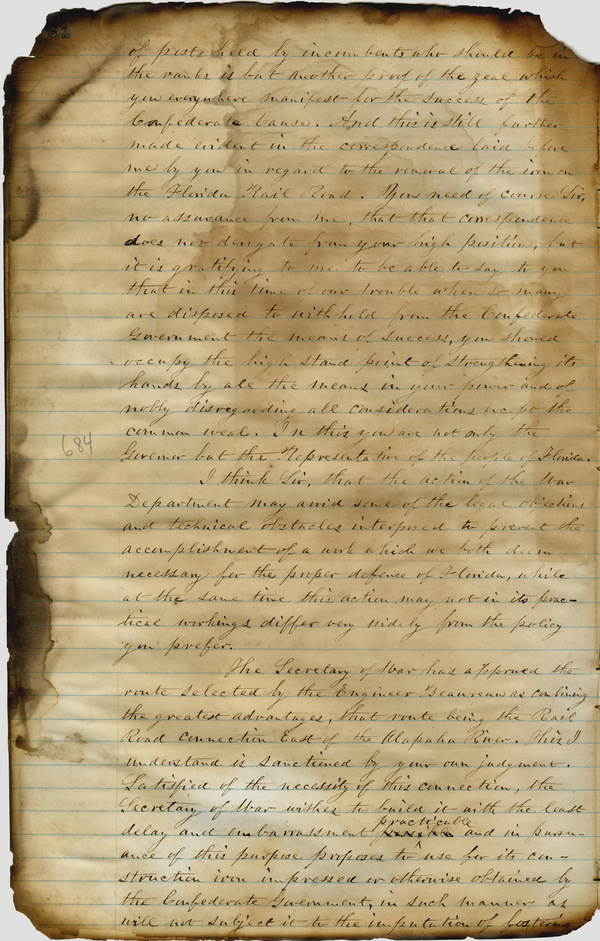 52
of posts held by incumbents who should be in
the ranks is but another proof of the zeal which
you everywhere manifest for the success of the
Confederate Cause. And this is still further
made evident in the correspondence laid before
me by you in regard to the removal of the iron on
the Florida Rail Road. You need of course Sir,
no assurance from me, that that correspondence
does not derogate from your high position, but
it is gratifying to me to be able to say to you
that in this time of our trouble when so many
are disposed to withhold from the Confederate
Government the means of success, you should
occupy the high stand point of strengthening its
hands by all the means in your power and of
nobly disregarding all considerations except the
common weal. In this you are not only the
Governor but the Representative of the people of Florida.
684
I think Sir, that the action of the War
Department may avoid some of the legal objections
and technical obstacles interposed to prevent the
accomplishment of a work which we both deem
necessary for the proper defence of Florida, while
at the same time this action may not in its prac-
tical workings differ very widely from the policy
you prefer.
The Secretary of War has approved the
route selected by the Engineer Beaureau as combining
the greatest advantages, that route being the Rail
Road connection East of the Alapaha River. This I
understand is sanctioned by your own judgment.
Satisfied of the necessity of this connection, the
Secretary of War wishes to build it with the least
practicable
delay and embarrassment possible and in pursu-
ance of this purpose proposes to use for its con-
struction iron impressed or otherwise obtained by
the Confederate Government, in such manner as
will not subject it to the imputation of fostering